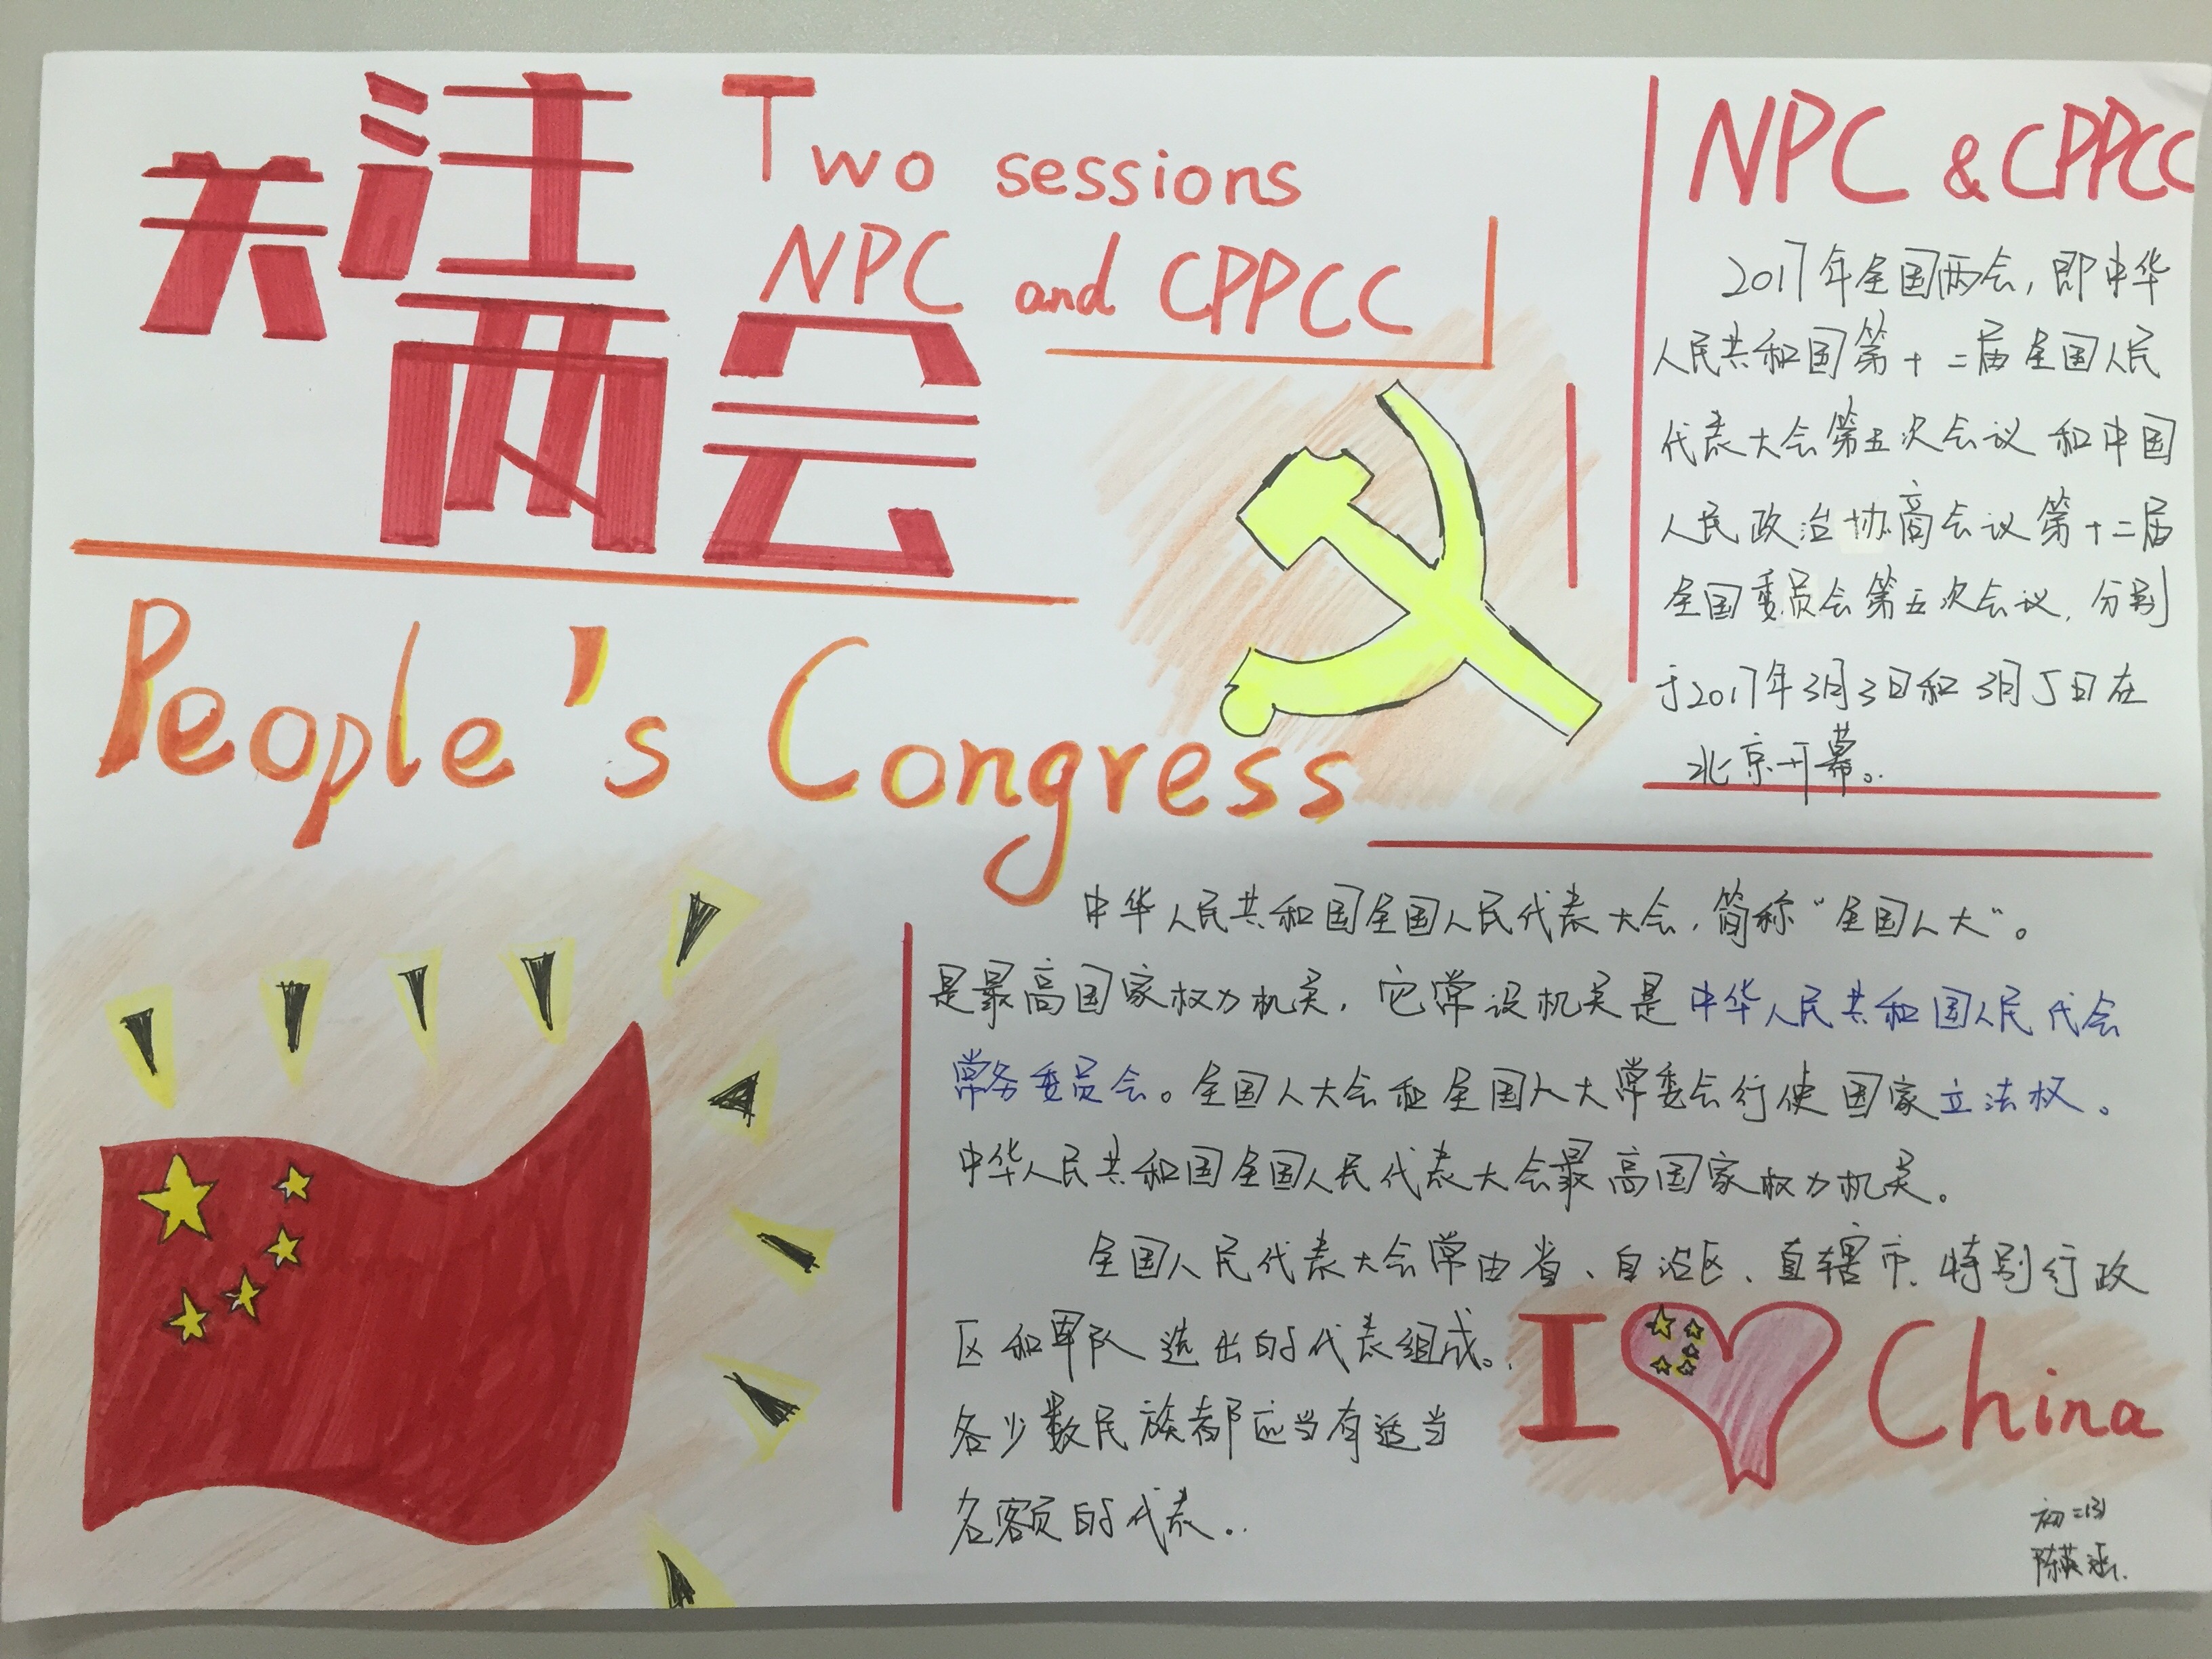 关注
两会
Two sessions
NPC and CPPCC
People's Congress
NPC & CPPCC
2017年全国两会，即中华
人民共和国第十二届全国人民
代表大会第五次会议和中国
人民政治协商会议第十二届
全国委员会第五次会议，分别
于2017年3月3日和3月5日在
北京开幕。
中华人民共和国全国人民代表大会，简称“全国人大”。
是最高国家权力机关，它常设机关是中华人民共和国人民代会
常务委员会。全国人大会和全国人大常委会行使国家立法权。
中华人民共和国全国人民代表大会最高国家权力机关。
全国人民代表大会常由省、自治区、直辖市、特别行政
区和军队选出的代表组成。
各少数民族都应当有适当
名额的代表。
I China
初二(3)
陈英